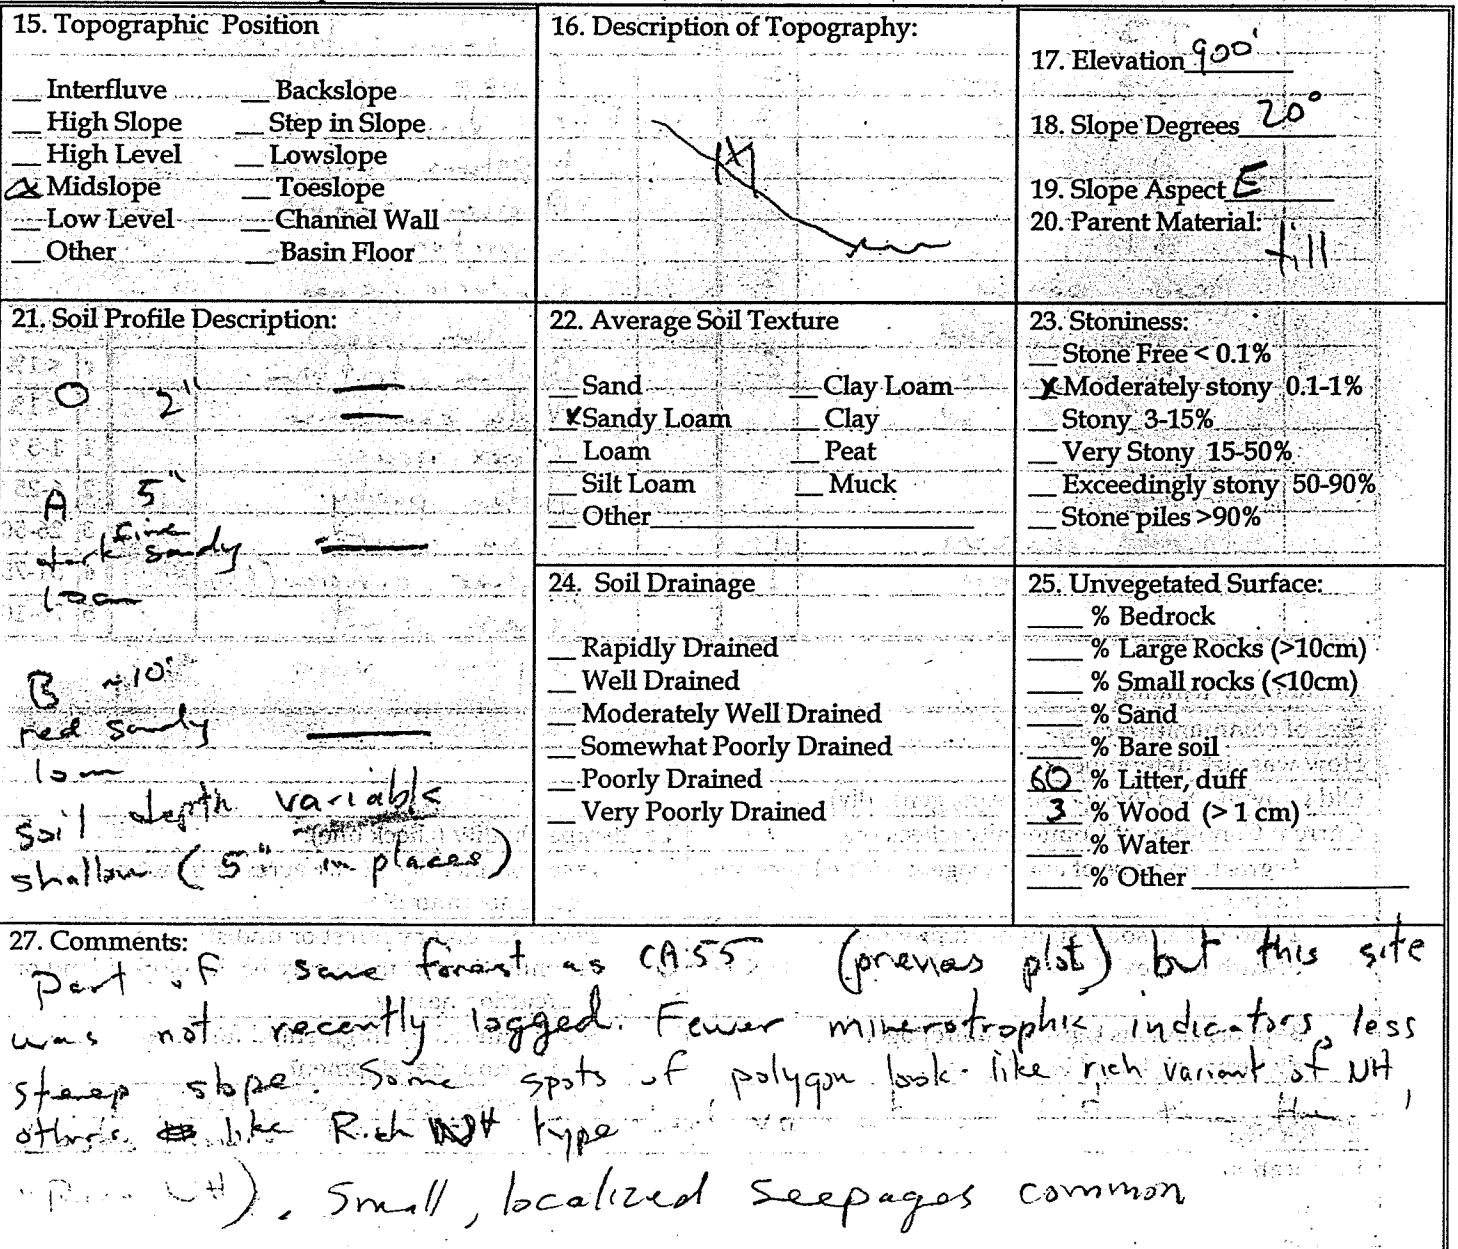 15. Topographic Position
__ Interfluve __ Backslope
__ High Slope __ Step in Slope
__ High Level __ Lowslope
x Midslope __ Toeslope
__ Low Level __ Channel Wall
__ Other __ Basin Floor
16. Description of Topography:
X
17. Elevation 900'
18. Slope Degrees 20°
19. Slope Aspect E
20. Parent Material:
till
21. Soil Profile Description:
O 2"
A 5"
fine
dark sandy
loam
B ~10"
red sandy
loam
soil depth variable
shallow (5" in places)
22. Average Soil Texture
__ Sand __ Clay Loam
x Sandy Loam __ Clay
__ Loam __ Peat
__ Silt Loam __ Muck
__ Other
23. Stoniness:
__ Stone Free < 0.1%
x Moderately stony 0.1-1%
__ Stony 3-15%
__ Very Stony 15-50%
__ Exceedingly stony 50-90%
__ Stone piles >90%
24. Soil Drainage
__ Rapidly Drained
__ Well Drained
__ Moderately Well Drained
__ Somewhat Poorly Drained
__ Poorly Drained
__ Very Poorly Drained
25. Unvegetated Surface:
____ % Bedrock
____ % Large Rocks (>10cm)
____ % Small rocks (<10cm)
____ % Sand
____ % Bare soil
60 % Litter, duff
3 % Wood (> 1 cm)
____ % Water
____ % Other
27. Comments:
Part of same forest as CA55 (previous plot) but this site
was not recently logged. Fewer minerotrophic indicators, less
steep slope. Some spots of polygon look like rich variant of NH,
others like Rich NH type
). Small, localized seepages common